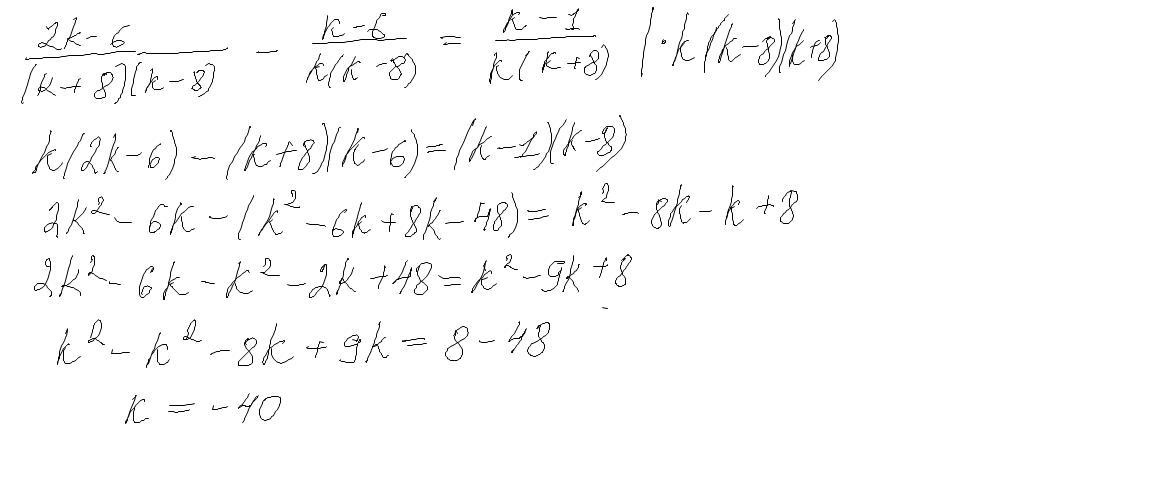 (2k-6)/((k+8)(k-8)) - (k-6)/(k(k-8)) = (k-1)/(k(k+8)) |·k(k-8)(k+8)
k(2k-6)-(k+8)(k-6)=(k-1)(k-8)
2k²-6k-(k²-6k+8k-48)=k²-8k-k+8
2k²-6k-k²-2k+48=k²-9k+8
k²-k²-8k+9k=8-48
k=-40